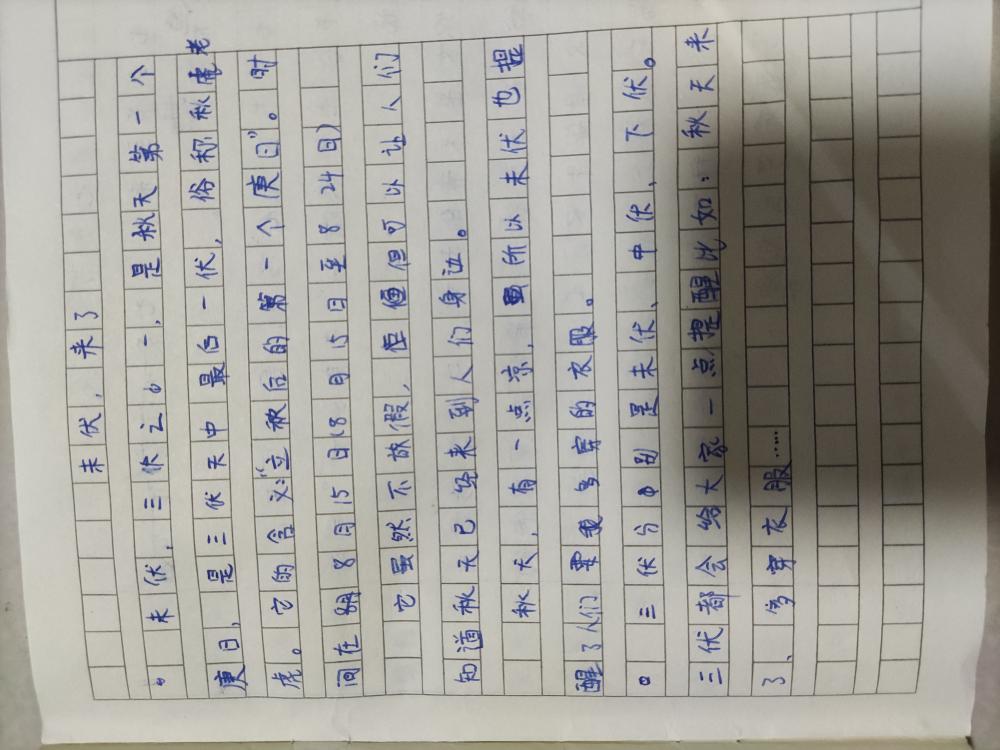 末伏,来了
末伏,三伏之一,是秋天第一个
庚日,是三伏天中最后一伏,俗称秋老
虎。它的含义:“立秋后的第一个庚日”。时
间在8月15日(8月15日至8月24日)
它虽然不放假,但可以让人们
知道秋天已经来到人们身边。
秋天,有一点凉,所以末伏也提
醒了人们要多穿的衣服。
三伏分别是末伏、中伏、下伏。
三伏都会给大家一点提醒比如:秋天来
了、多穿衣服……